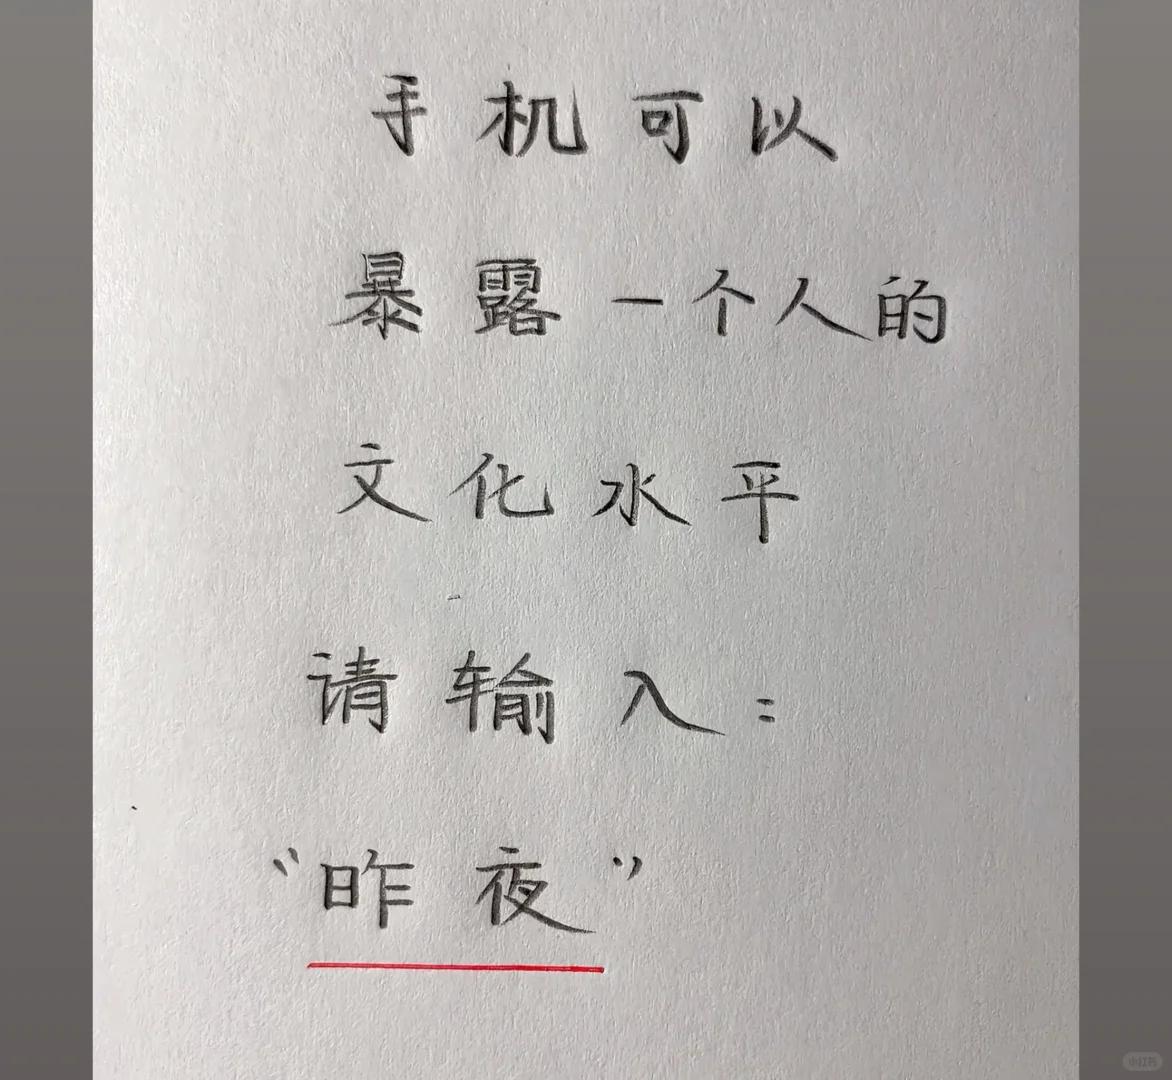 手机可以
暴露一个人的
文化水平
请输入：
“昨夜”
小红书